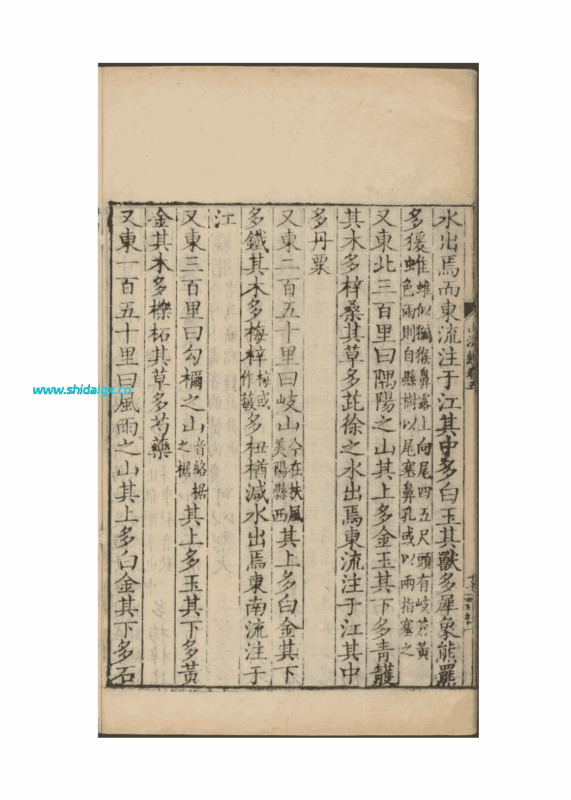 水出焉而東流注于江其中多白玉其獸多犀象熊羆
多猨蜼蜼似獼猴鼻露上向尾四五尺頭有岐蒼黃
色雨則自縣樹以尾塞鼻孔或以兩指塞之
又東北三百里曰隅陽之山其上多金玉其下多青雘
其木多梓桑其草多茈徐之水出焉東流注于江其中
多丹粟
又東二百五十里曰岐山今在扶風
美陽縣西其上多白金其下
多鐵其木多梅梓梅或
作䔧多杻楢減水出焉東南流注于
江
又東三百里曰勾檷之山音絡椐
之椐其上多玉其下多黃
金其木多櫟柘其草多芍藥
又東一百五十里曰風雨之山其上多白金其下多石
www.shidaigz.cn